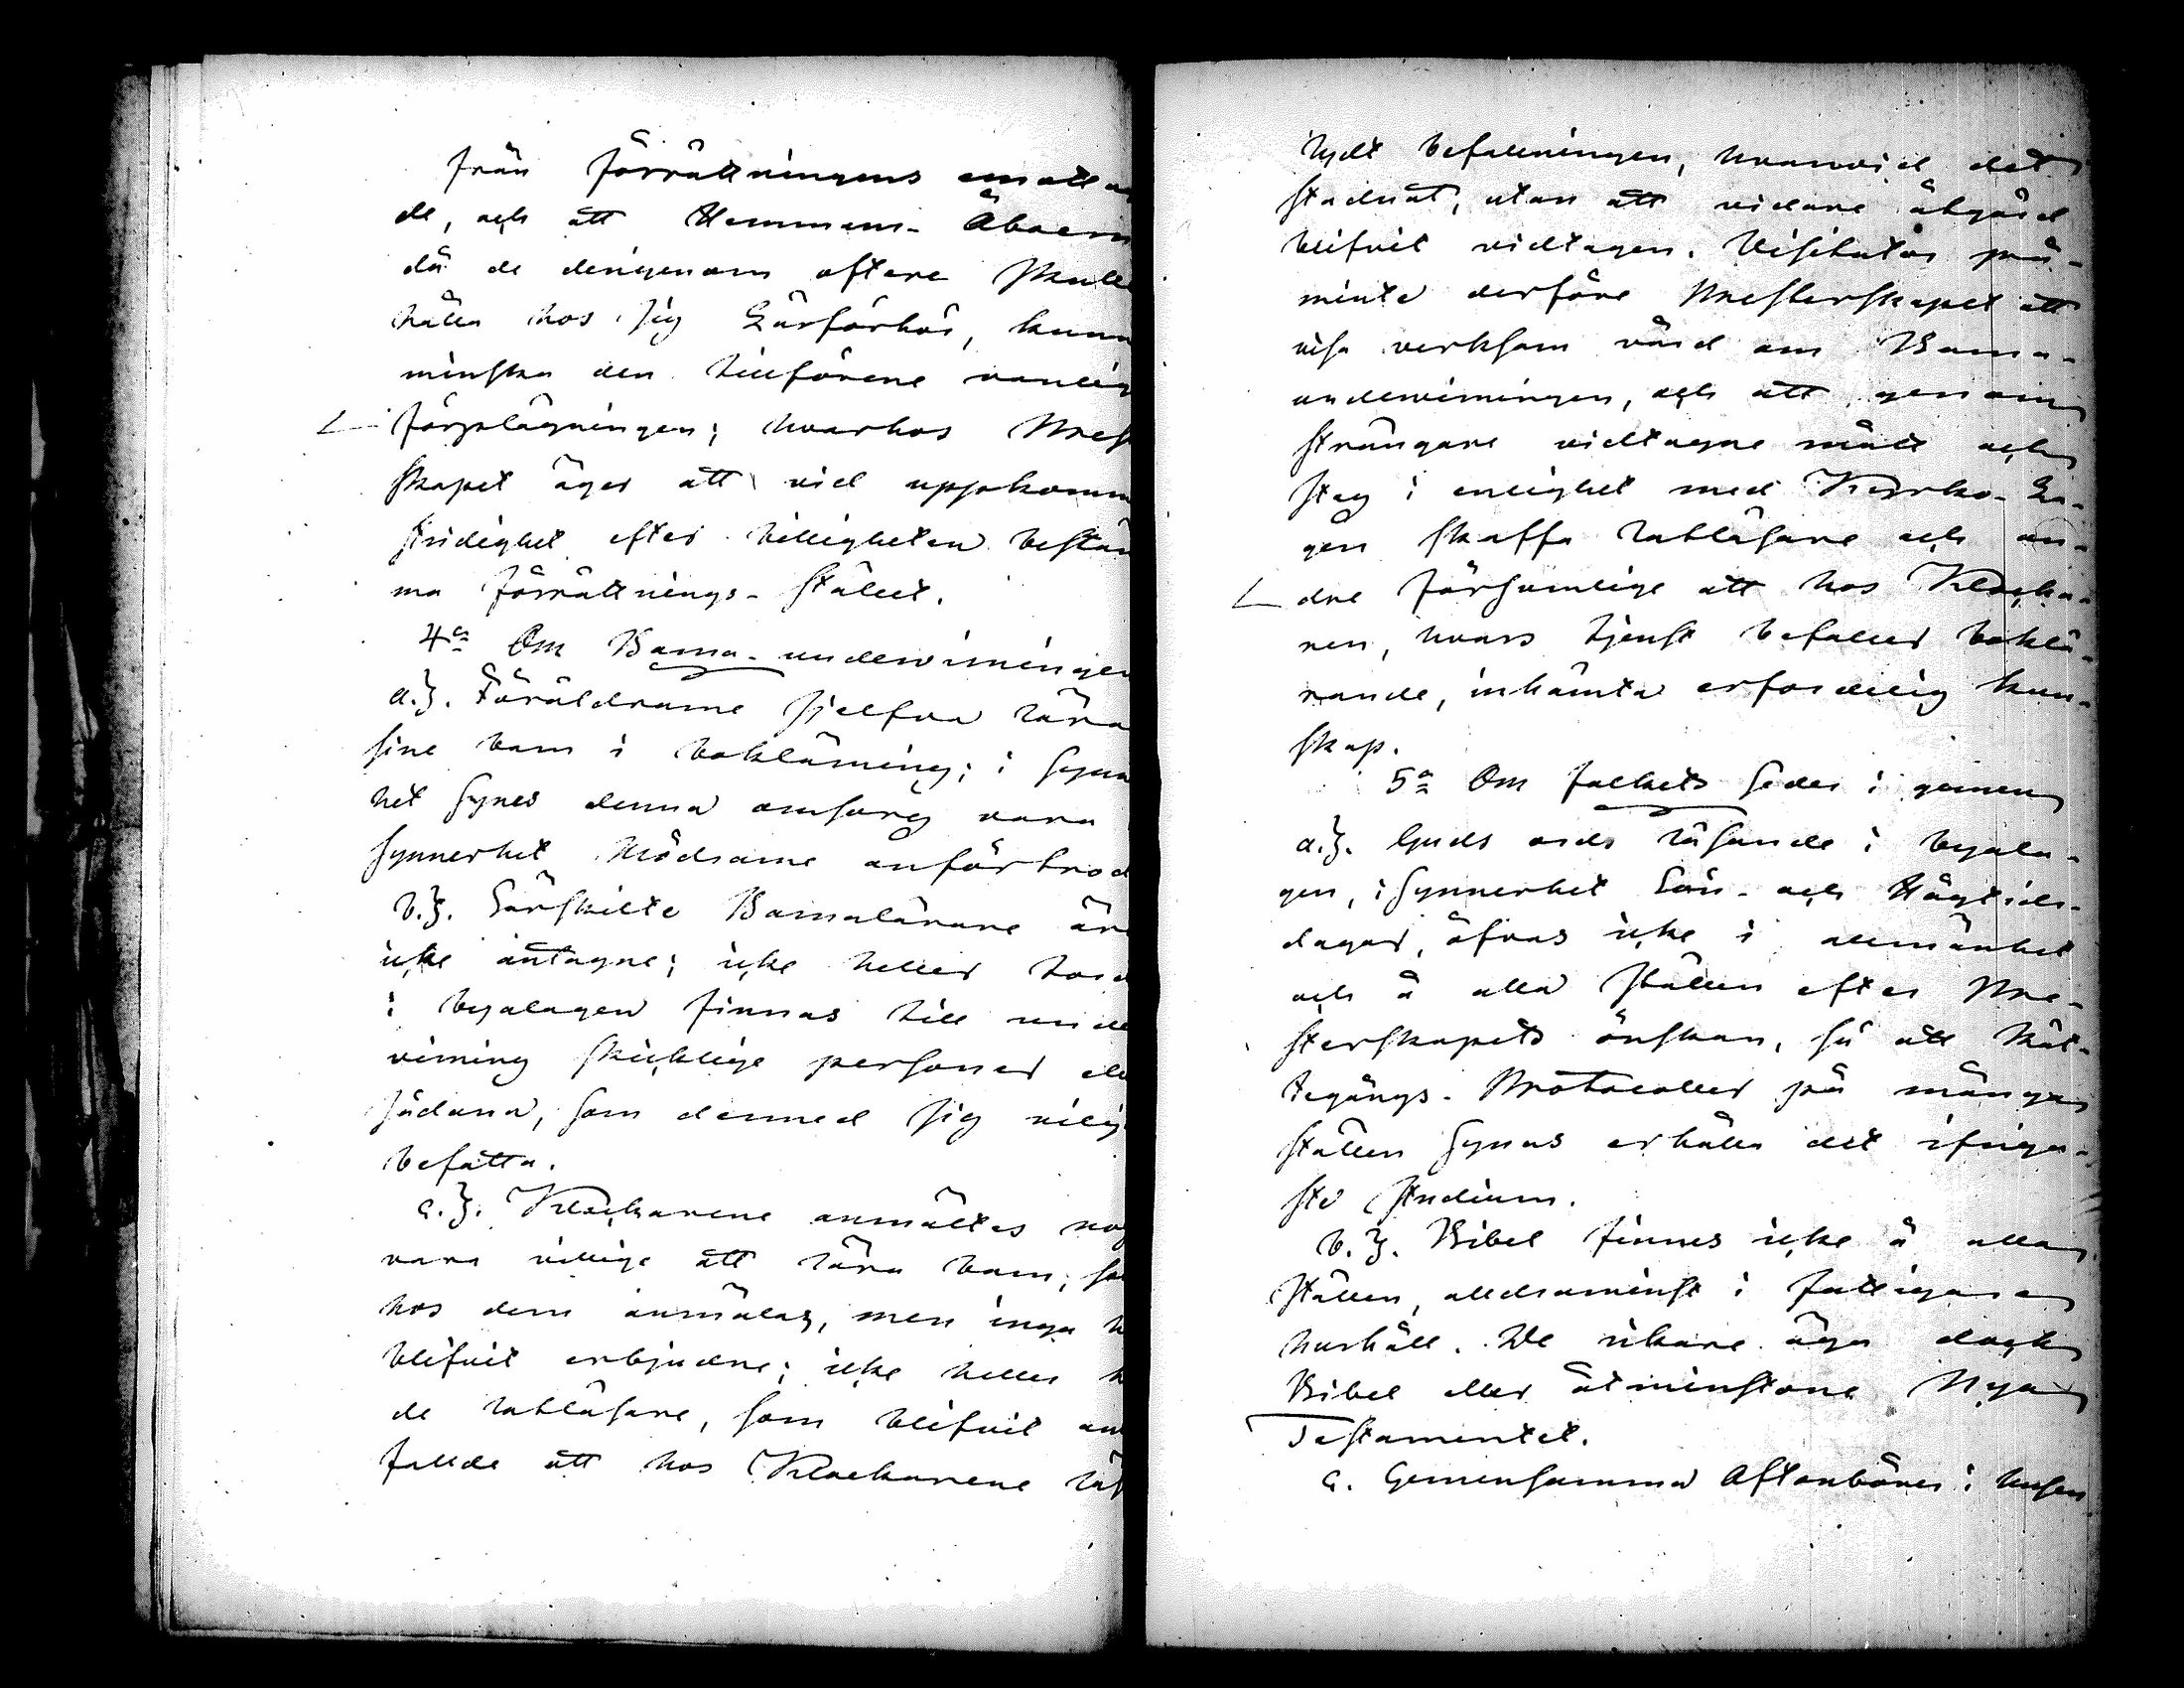 från förrättningens emotta
de, och att Hemmans-Åboern
då de derigenom oftare skull
hålla hos sig Läsförhör, kunn
minska den tillförene vanlig
förplägningen; hvarhos Prest
skapet äger att vid uppkomm
stridighet efter billigheten bestäm
ma förrättnings-stället.
4º Om Barna-underwisningen
a.). Föräldrarne sjelfva lära
sine barn i boklärning; i synn
het synes denna omsorg vara
synnerhet Mödrarne anförtrod
b.). Särskilte Barnalärare äro
icke antagne; icke heller tord
i byalagen finnas till unde
visning skicklige personer ell
sådana, som dermed sig vilja
befatta.
c.). Klockarene anmältes nog
vara villige att lära barn, so
hos dem anmälas, men inga h
blifvit erbjudne; icke heller h
de tabläsare, som blifvit an
fallde att hos Klockarene läs
lydt befallningen, hvarvid det
stadnat, utan att vidare åtgärd
blifvit vidtagen. Visitator på-
minte derföre Presterskapet att
visa verksam vård om Barna-
underwisningen, och att genom
strängare vidtagne mått och
steg i enlighet med Kyrko-La-
gen skaffa tabläsare och an-
dre försumlige att hos Klocka-
ren, hvars tjenst befaller boklä-
rande, inhämta erforderlig kun-
skap.
5º Om folkets seder i gemen
a.). Guds ords läsande i byala-
gen, i synnerhet Sön- och Högtids-
dagar, öfvas icke i allmänhet
och å alla ställen efter Pre-
sterskapets önskan, så att Rät-
tegångs-Protocoller på många
ställen synas erhålla det ifriga-
ste studium.
b.). Bibel finnes icke å alla
ställen, alldraminst i fattigare
hushåll. De rikare äga dock
Bibel eller åtminstone Nya
Testamentet.
c. Gemensamma Aftonböner i husen